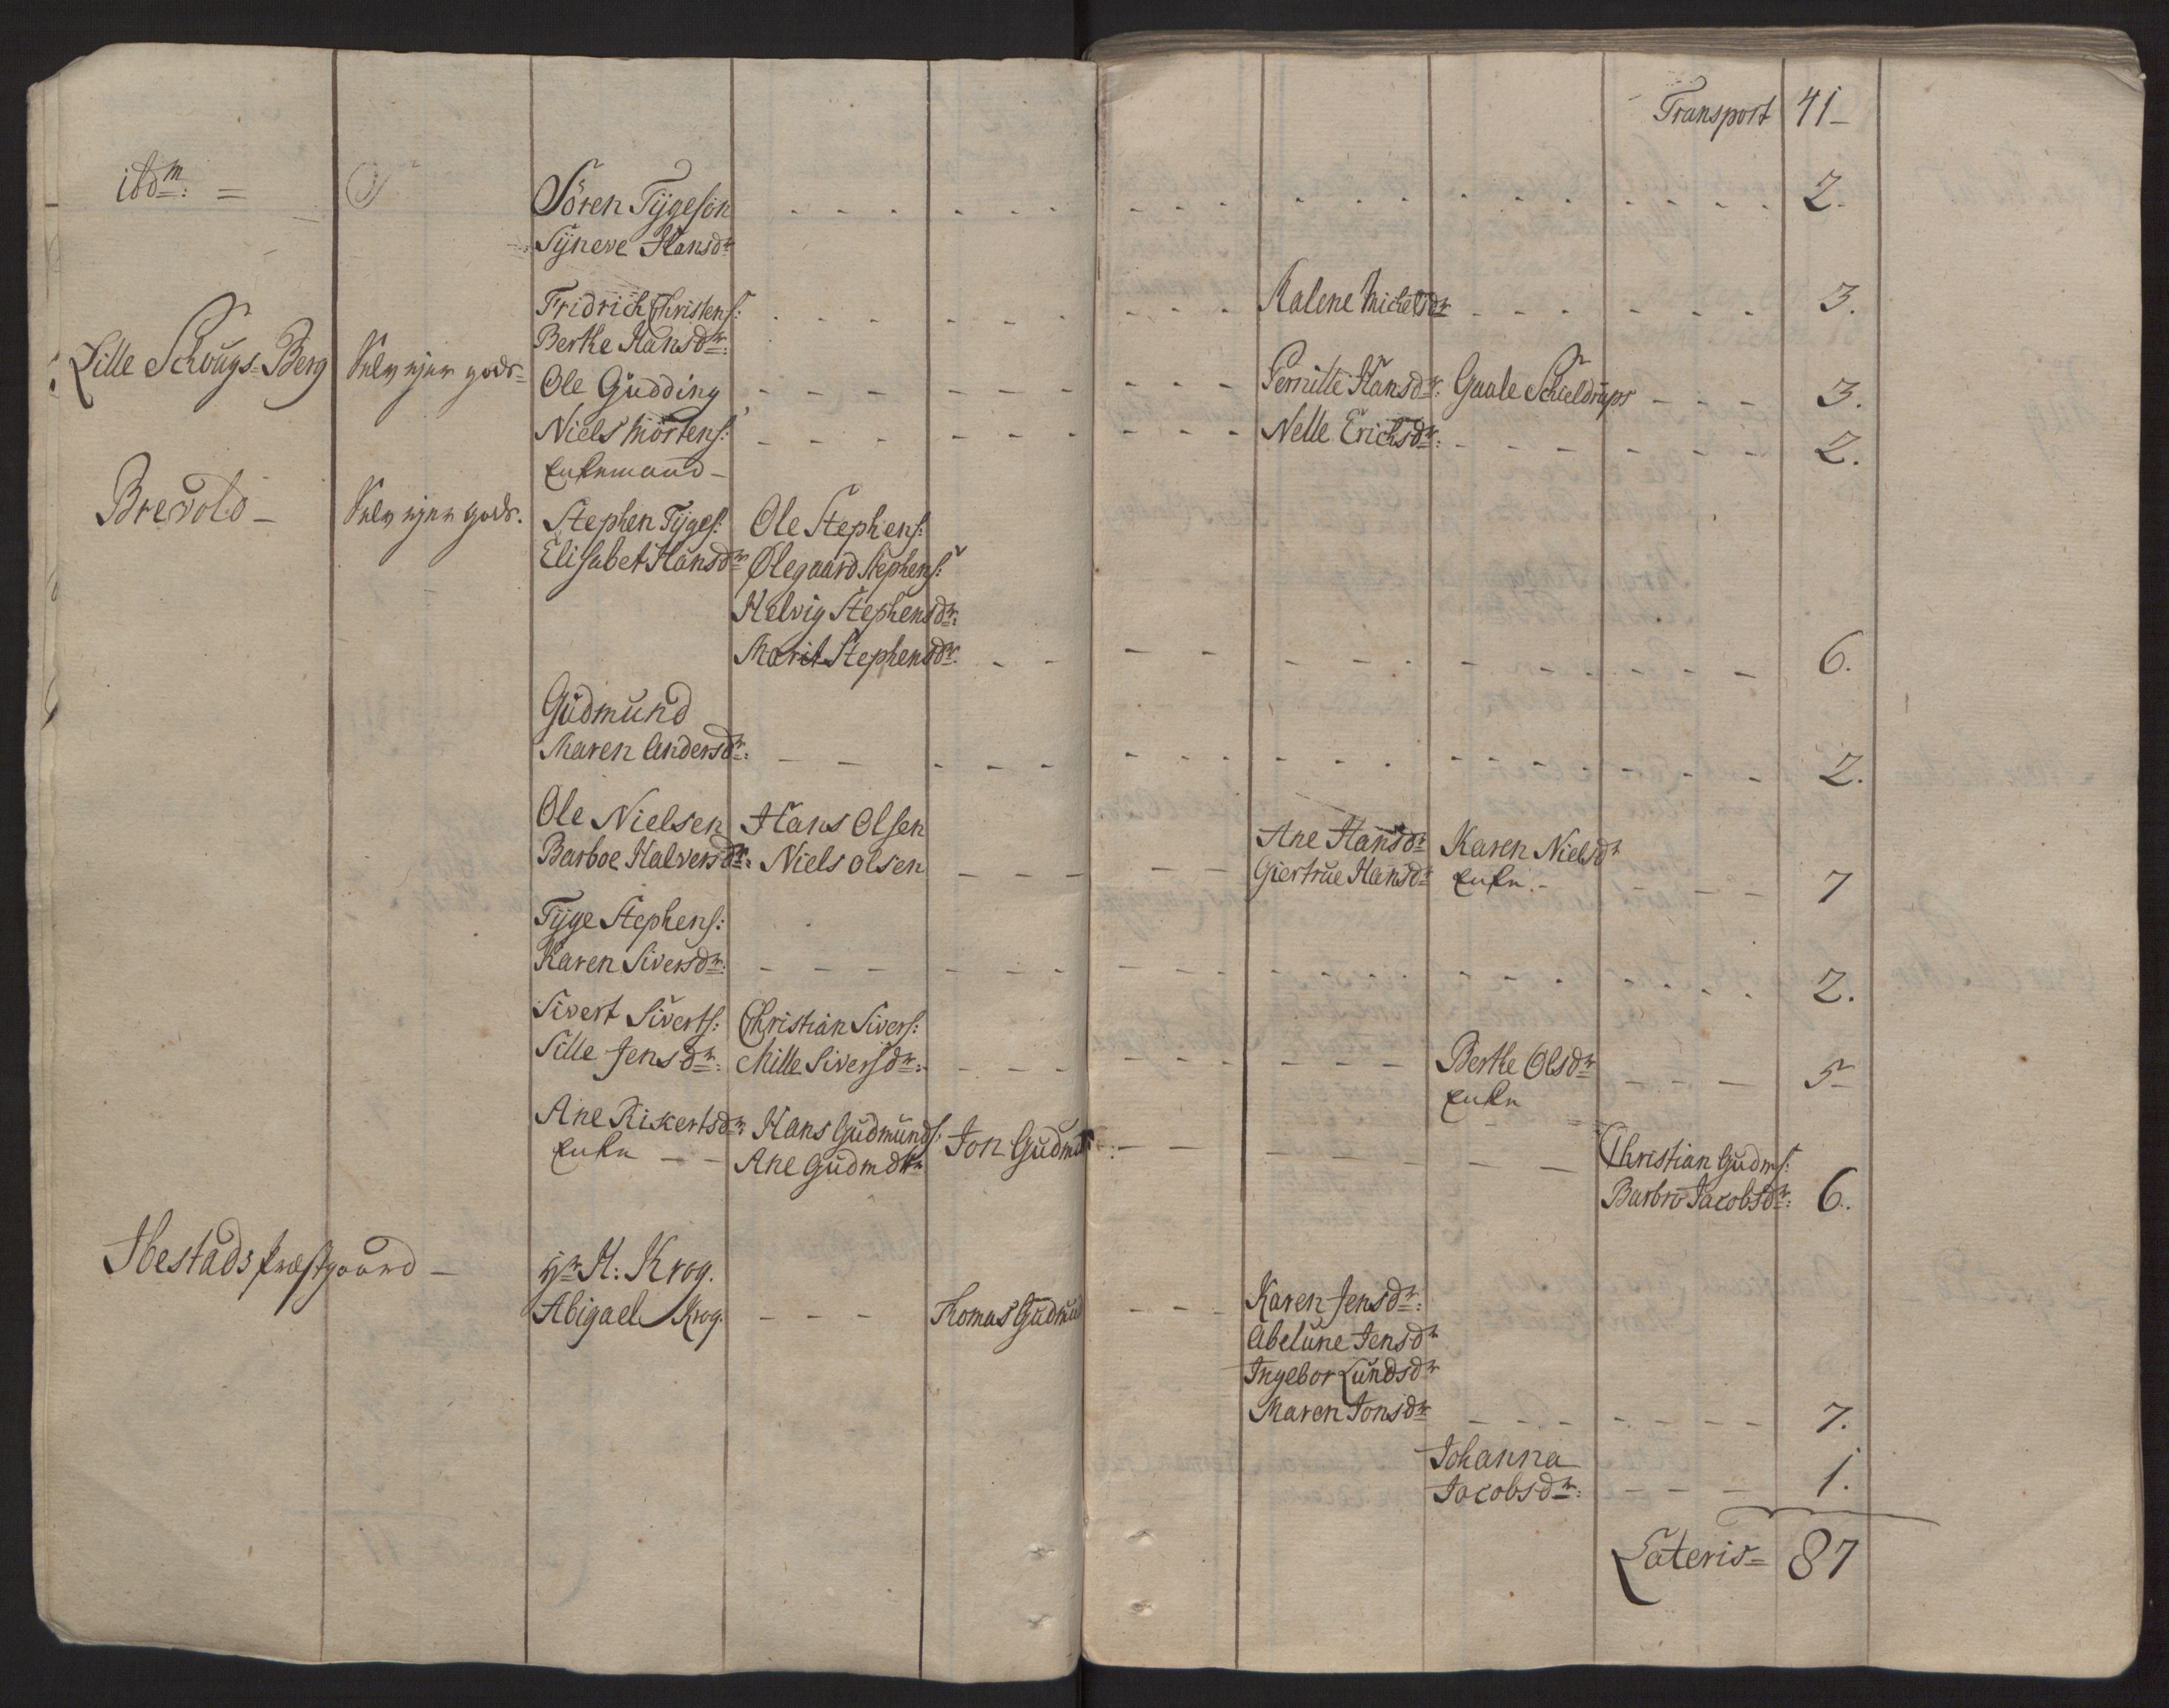 Transport 41
ibdm: =
Sören Tÿgesön 2.
Sÿneve Hansdr
Fridrich Christens: Kalene Michelsdr 3.
Berthe Hansdr:
Lille Schougs=Berg Selv ejer gods=
Ole Gudding Pernille Hansdr: Gaale Schieldrups 3.
Niels Mörtens: Nelle Erichsdr: 2.
Enkemand
Brevold Selv ejer gods.
Stephen Tÿges: Ole Stephens:
Elisabet Hansdr Ølegaard Stephens:
Helvig Stephensdr:
Marit Stephensdr. 6.
Gudmund
Maren Andersdr: 2.
Ole Nielsen Hans Olsen Ane Hansdr Karen Nielsdr
Barboe Halversdr: Niels Olsen Giertrue Hansdr Enke 7
Tÿge Stephens:
Karen Siversdr: 2.
Sivert Siverts: Christian Sivers:
Sille Jensdr: Mille Siversdr: Berthe Olsdr 5
Enke
Ane Rikertsdr Hans Gudmunds: Jon Gudmds: Christian Gudms:
Enke Ane Gudmdtr Barbro Jacobsdr: 6.
Ibestads Præstgaard
Hr H: Krog.
Abigael Krog. Thomas Gudmud Karen Jensdr:
Abelune Jensdr
Ingebor Lundsdr
Maren Jonsdr 7.
Johanna
Jacobsdr: 1.
Lateris= 87